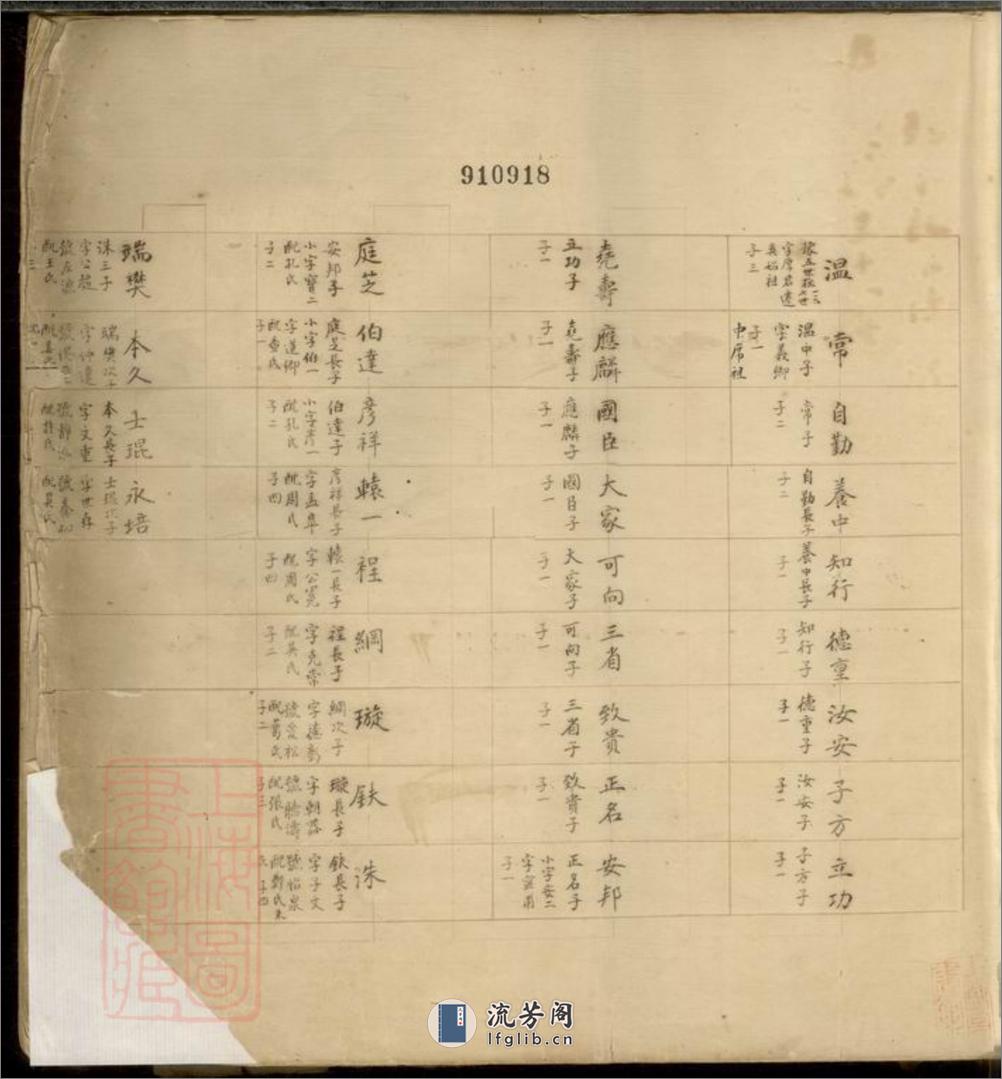 910918
温
字厚君遷
吴始祖
子三
常
温中子
字義卿
子一
中房祖
自勤
常子
子二
養中
自勤長子
子二
知行
養中長子
子一
德重
知行子
子一
汝安
德重子
子一
子方
汝安子
子一
立功
子方子
子一
堯壽
立功子
子一
應麟
堯壽子
子一
國臣
應麟子
子一
大家
國臣子
子一
可向
大家子
子一
三省
可向子
子一
致貴
三省子
子一
正名
致貴子
子一
安邦
正名子
小字安二
子一
庭芝
安邦子
小字寶二
配孔氏
子二
伯達
庭芝長子
小字伯一
字道卿
配查氏
子一
彦祥
伯達子
小字彦一
配孔氏
子二
轅一
彦祥長子
字孟阜
配周氏
子四
裎
轅一長子
字公冕
配周氏
子四
綱
裎長子
字克常
配吴氏
子二
璇
綱次子
字德衡
號愛松
配葛氏
子二
鈇
璇長子
配張氏
子三
洙
鈇長子
字子文
號怡泉
子四
瑞樊
洙三子
字公超
配王氏
本久
瑞樊次子
字仲達
士琨
本久長子
字文重
永培
士琨次子
字世存
配吴氏
上海圖書館藏
流芳阁
lfglib.cn